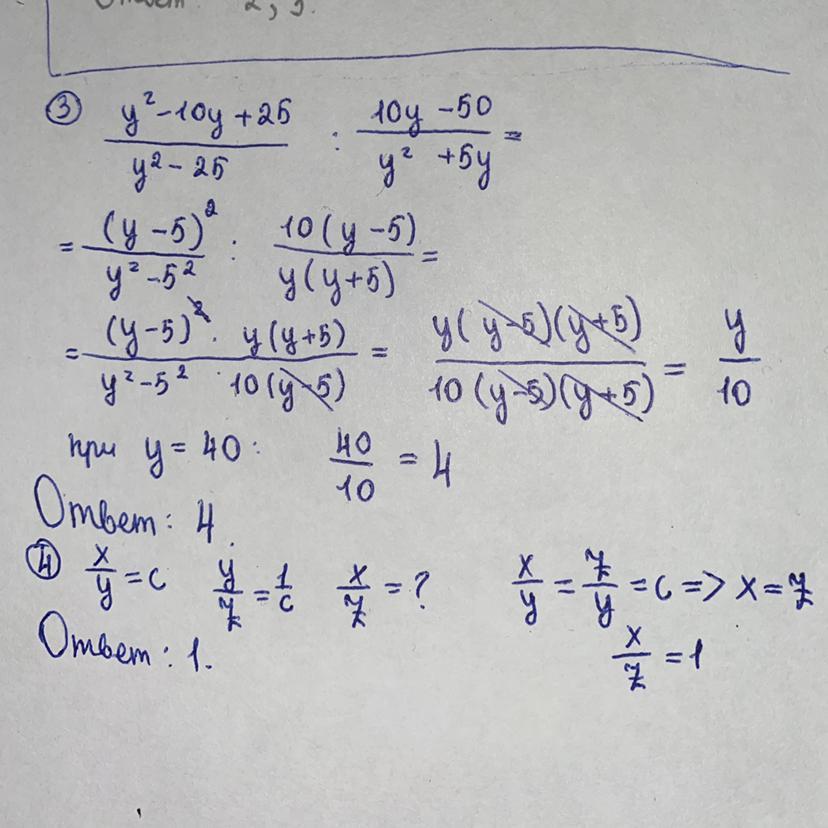 Ответ: 2, 3.
③ (y² - 10y + 25)/(y² - 25) : (10y - 50)/(y² + 5y) =
= (y - 5)²/(y² - 5²) : 10(y - 5)/(y(y + 5)) =
= (y - 5)² · y(y + 5)/(y² - 5² · 10(y - 5)) = y(y - 5)(y + 5)/(10(y - 5)(y + 5)) = y/10
при y = 40: 40/10 = 4
Ответ: 4.
④ x/y = c y/z = 1/c x/z = ? x/y = z/y = c => x = z
x/z = 1
Ответ: 1.